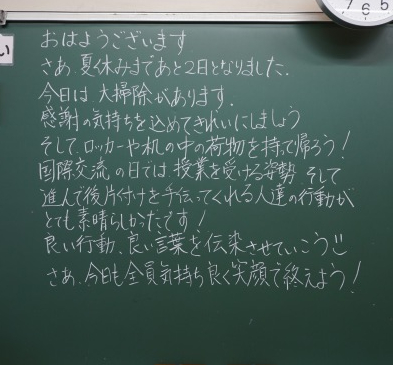 おはようございます
さあ、夏休みまであと2日となりました。
今日は大掃除があります。
感謝の気持ちを込めてきれいにしましょう
そして、ロッカーや机の中の荷物を持って帰ろう!
国際交流の日では、授業を受ける姿勢、そして
進んで後片付けを手伝ってくれる人達の行動が
とても素晴らしかったです!
良い行動、良い言葉を伝染させていこう
さあ、今日も全員気持ち良く笑顔で終えよう!
い
7 6 5